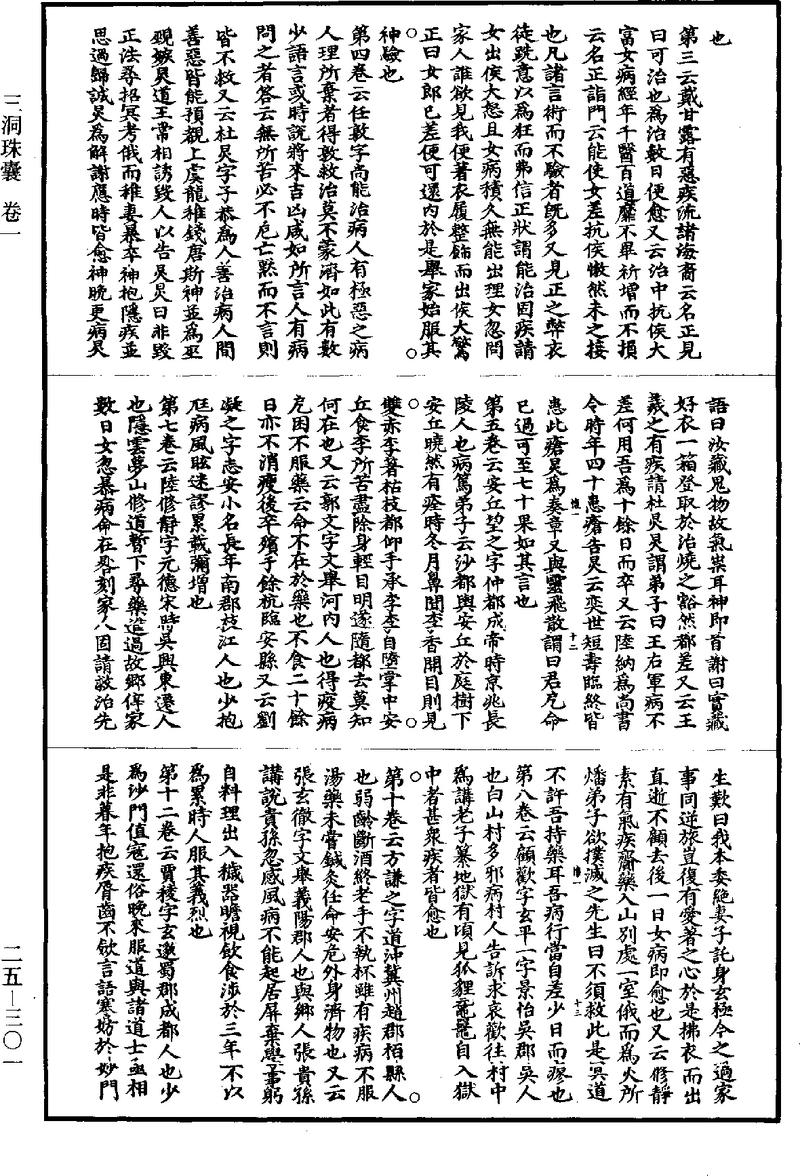 也
第三云戴甘露有惡疾流諸海裔云名正見
曰可治也為治數日便愈又云治中抗侯大
富女病經年千醫百道靡不畢祈增而不損
云名正詣門云能使女差抗侯懒然未之接
也凡諸言術而不驗者旣多又見正之弊衣
徒跣意以為狂而弗信正狀謂能治困疾請
女出侯大怒且女病積久無能出理女忽問
家人誰欲見我便著衣履整飾而出侯大驚
正曰女郎已差便可還內於是舉家始服其
神驗也
第四卷云任敦字尚能治病人有極惡之病
人理所棄者得敦救治莫不蒙濟如此有數
少語言或時說將來吉凶咸如所言人有病
問之者答云無所苦必不㢮亡黙而不言則
皆不救又云杜炅字子恭為人善治病人間
善惡皆能預覩上虞龍稚錢唐斯神並為巫
覡嫉炅道王常相誘毀人以告炅炅曰非毀
正法尋招冥考俄而稚妻暴卒神抱隱疾並
思過歸誠炅為解謝應時皆愈神晚更病炅
語曰汝藏鬼物故氣祟耳神即首謝曰實藏
好衣一箱登取於治燒之豁然都差又云王
羲之有疾請杜炅炅謂弟子曰王右軍病不
差何用吾為十餘日而卒又云陸納為尚書
令時年四十患瘡告炅云奕世短壽臨終皆
患此瘡炅為奏章又與靈飛散謂曰君厄命
已過可至七十果如其言也
第五卷云安丘望之字仲都成帝時京兆長
陵人也病篤弟子云沙都與安丘於庭樹下
安丘曉然有痊時冬月鼻聞李香開目則見
雙赤李著枯枝都仰手承李李自墮掌中安
丘食李所苦盡除身輕目明遂隨都去莫知
何在也又云郭文字文舉河內人也得疫病
危困不服藥云命不在於藥也不食二十餘
日亦不消瘦後卒殯于餘杭臨安縣又云劉
凝之字志安小名長年南郡枝江人也少抱
尫病風眩迷謬累載彌增也
第七卷云陸修靜字元德宋時吳興東遷人
也隱雲夢山修道暫下尋藥進過故鄉停家
數日女忽暴病命在晷刻家人因請救治先
生歎曰我本委絕妻子託身玄極今之過家
事同逆旅豈復有愛著之心於是拂衣而出
直逝不顧去後一日女病即愈也又云修靜
素有氣疾齎藥入山別處一室俄而為火所
燔弟子欲撲滅之先生曰不須救此是冥道
不許吾持藥耳吾病行當自差少日而瘳也
第八卷云顧歡字玄平一字景怡吳郡吳人
也白山村多邪病村人告訴求哀歡往村中
為講老子纂地獄有頃見狐狸黿鼉自入獄
中者甚衆疾者皆愈也
第十卷云方謙之字道沖冀州趙郡栢縣人
也弱齡斷酒終老手不執杯雖有疾病不服
湯藥未嘗鍼灸任命安危外身濟物也又云
張玄徹字文舉義陽郡人也與鄉人張貴孫
講說貴孫忽感風病不能起居屏棄學事躬
自料理出入穢器瞻視飲食涉於三年不以
為累時人服其義烈也
第十二卷云賈稜字玄邈蜀郡成都人也少
為沙門值寇還俗晚來服道與諸道士亟相
是非暮年抱疾脣齒不歛言語蹇妨於妙門
三洞珠囊　卷一
二五—三〇一